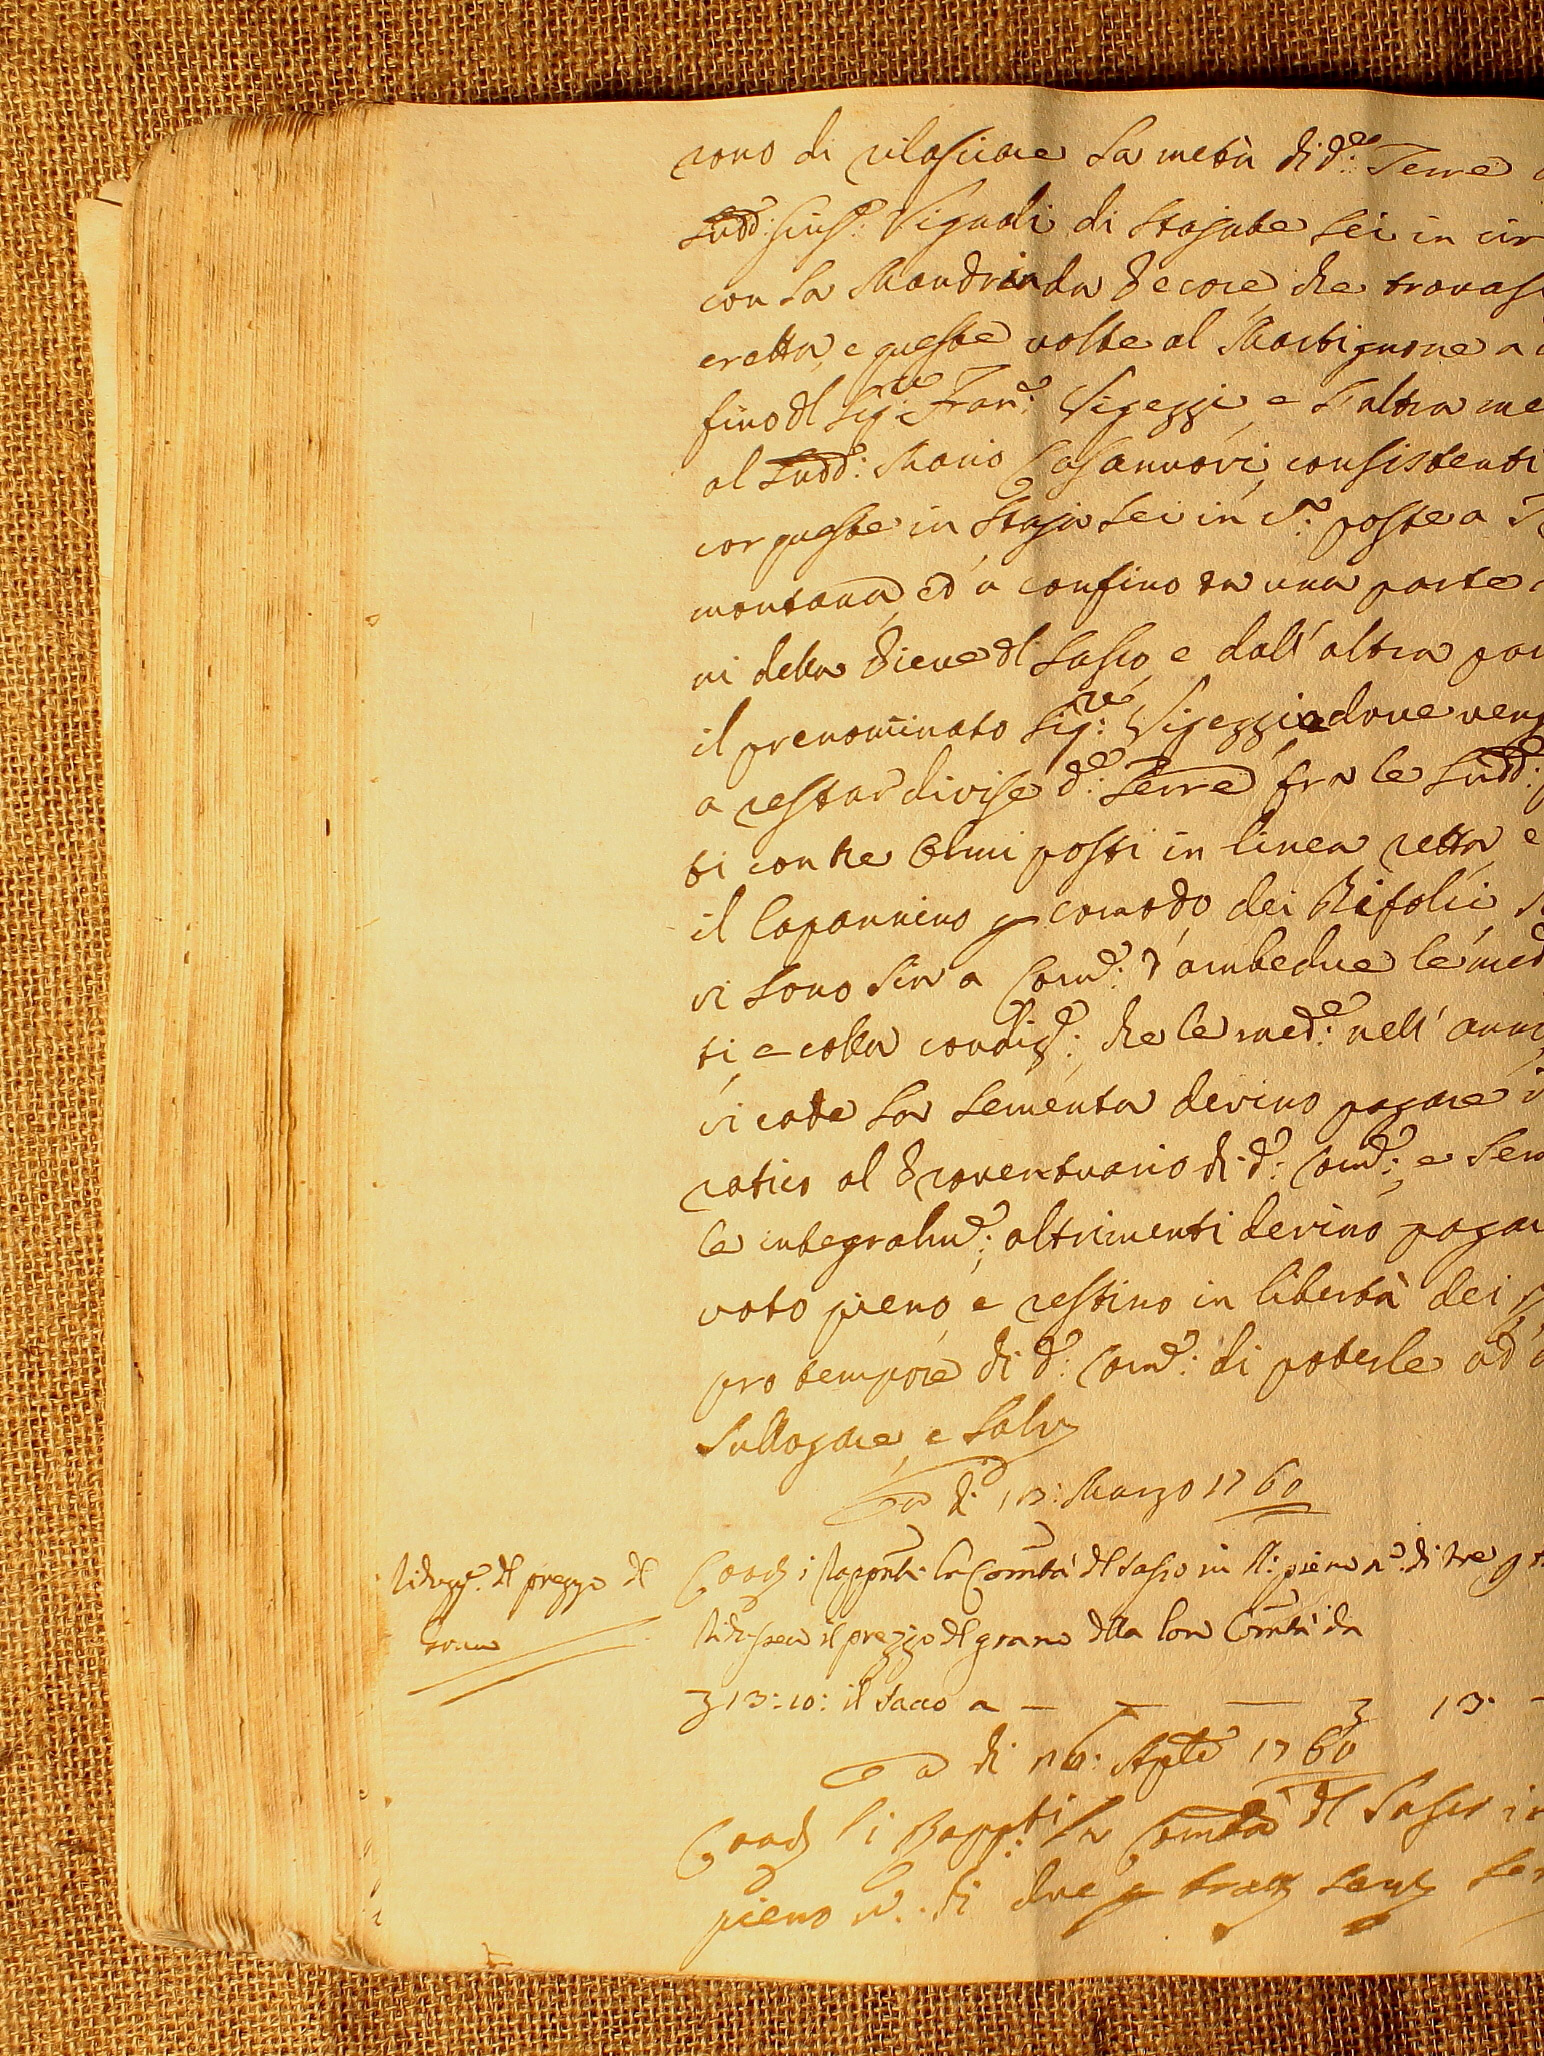 rono di rilasciare la metà di d.e Terre
Sudd.o Gius.e Vignali di Stajate sei in cir
con la Mandria da Pecore, che trovasi
eretta, e queste volte al Martignone a
fino dl Sig.re Fran.co Vigezzi, e l'altra me
al Sudd.o Mario Casannovi, consistenti
cor queste in Staja sei in c.a poste a
montana, ed a confino da una parte
ni della Pieve dl Sasso, e dall'altra par
il prenominato Sig.re Vigezzi, e dove veng
a restar divise d.e Terre fra le Sudd.e
ti con tre Olmi posti in linea retta, e
il Capannino p comodo dei Bifolci
vi sono sin a Com.e d'ambedue le med
ti, e colla condiz.e che le med.e nell'anno
vi cade la sementa devino pagare i
ratico al Proventuario di d.o Com.e, e sem
le integralm.e; altrimenti devino pagar
voto pieno, e restino in libertà dei
pro tempore di d.o Com.e di poterle ad
Sullogare, e Salv
A d. 13: Marzo 1760
Riduz.e dl prezzo dl
grano
Coad i Rapp.nti la Com.tà dl Sasso in N: pieno n.o di tre p
ridussero il prezzo dl grano dlla loro Com.tà da
13:10: il Sacco a — — — 13.
A di 26: Aple 1760
Coad li Rapp.ti la Com.tà dl Sasso in
pieno n.o di due p tratt